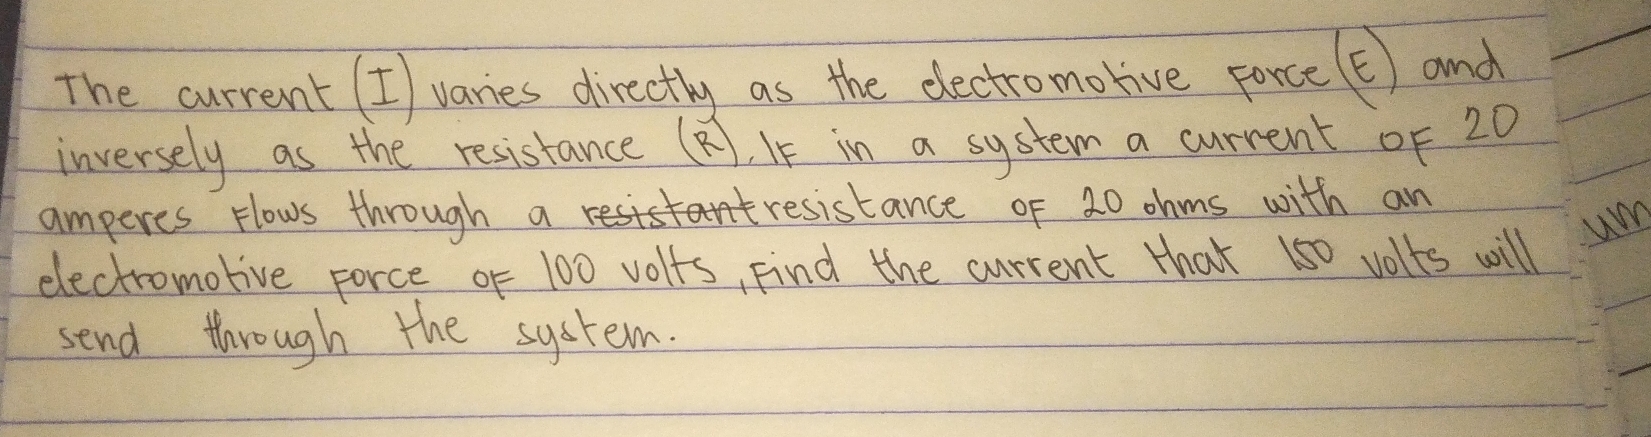 The current (I) varies directly as the electromotive Force (E) and
inversely as the resistance (R). IF in a system a current OF 20
amperes Flows through a resistant resistance OF 20 ohms with an
electromotive Force OF 100 volts, Find the current that 150 volts will
send through the system.
um